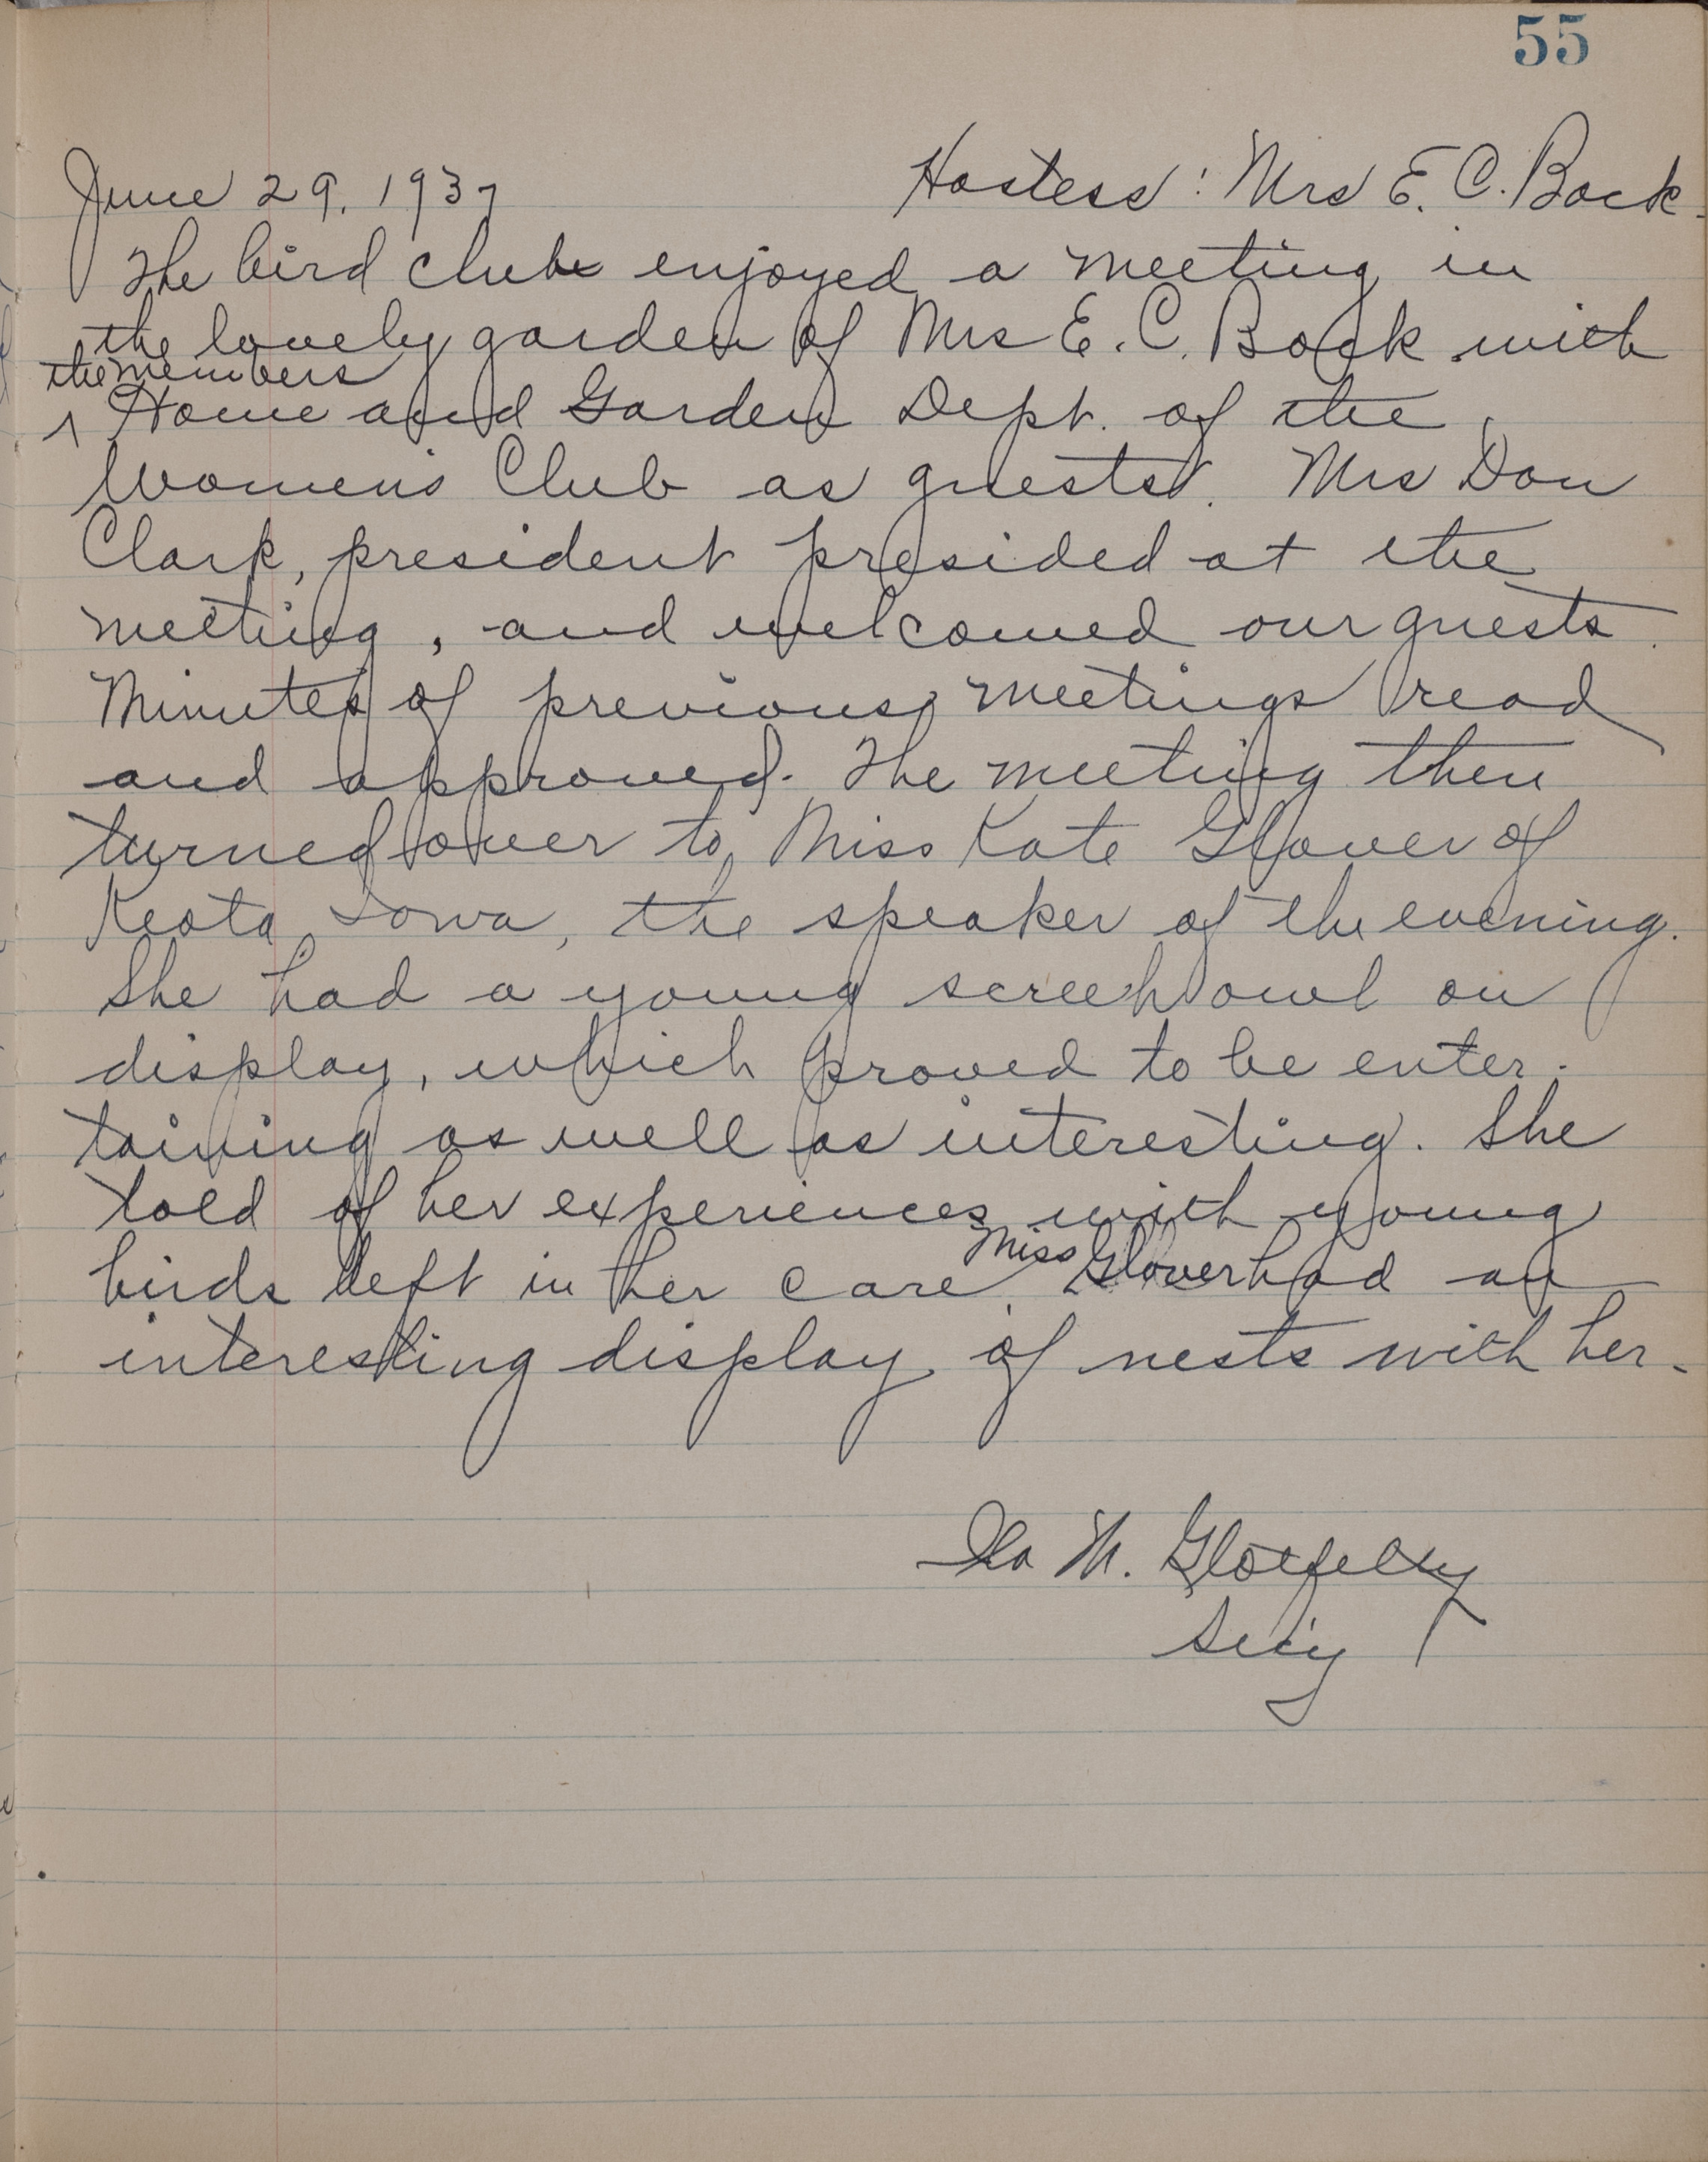 55
June 29, 1937 Hostess: Mrs E. C. Bock.
The bird club enjoyed a meeting in
the lovely garden of Mrs E. C. Bock with
the members
^ Home and Garden Dept. of the
Women's Club as guests. Mrs Don
Clark, president presided at the
meeting, and welcomed our guests.
Minutes of previous meetings read
and approved. The meeting then
turned over to Miss Kate Glover of
Keota Iowa, the speaker of the evening.
She had a young screech owl on
display, which proved to be enter-
taining as well as interesting. She
told of her experiences with young
birds left in her care. Miss Glover had an
interesting display of nests with her.
M. Glotfelty
Sec'y